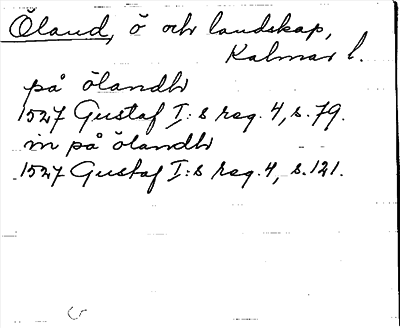 Öland, ö och landskap,
Kalmar l.
på ölandh
1527 Gustaf I:s reg. 4, s. 79.
in på ölandh
1527 Gustaf I:s reg. 4, s. 121.